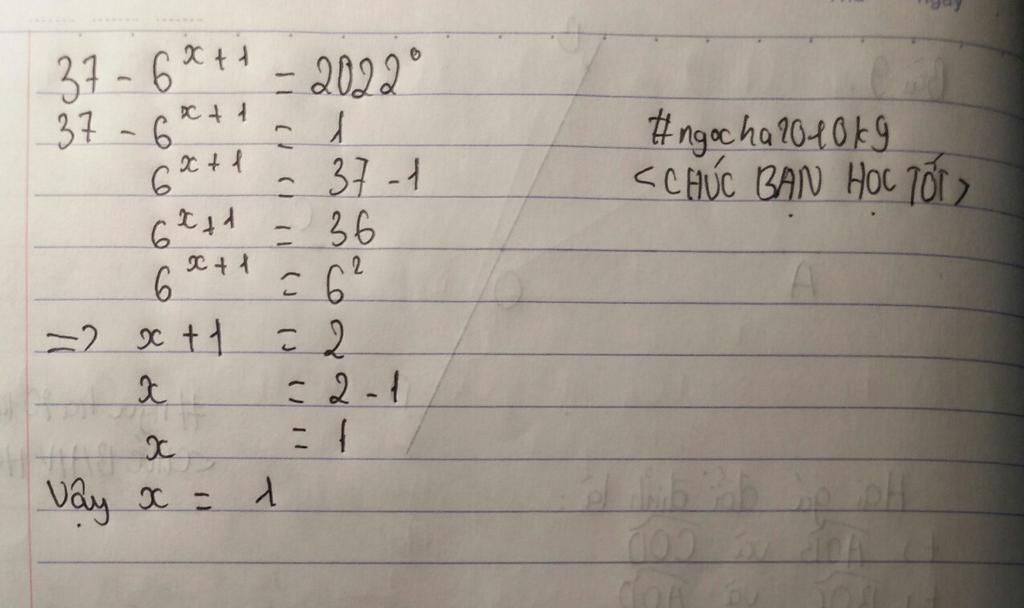 37 - 6^{x+1} = 2022^0
37 - 6^{x+1} = 1
6^{x+1} = 37 - 1
6^{x+1} = 36
6^{x+1} = 6^2
=> x + 1 = 2
x = 2 - 1
x = 1
Vậy x = 1
#ngocha2010kg
<CHÚC BẠN HỌC TỐT>